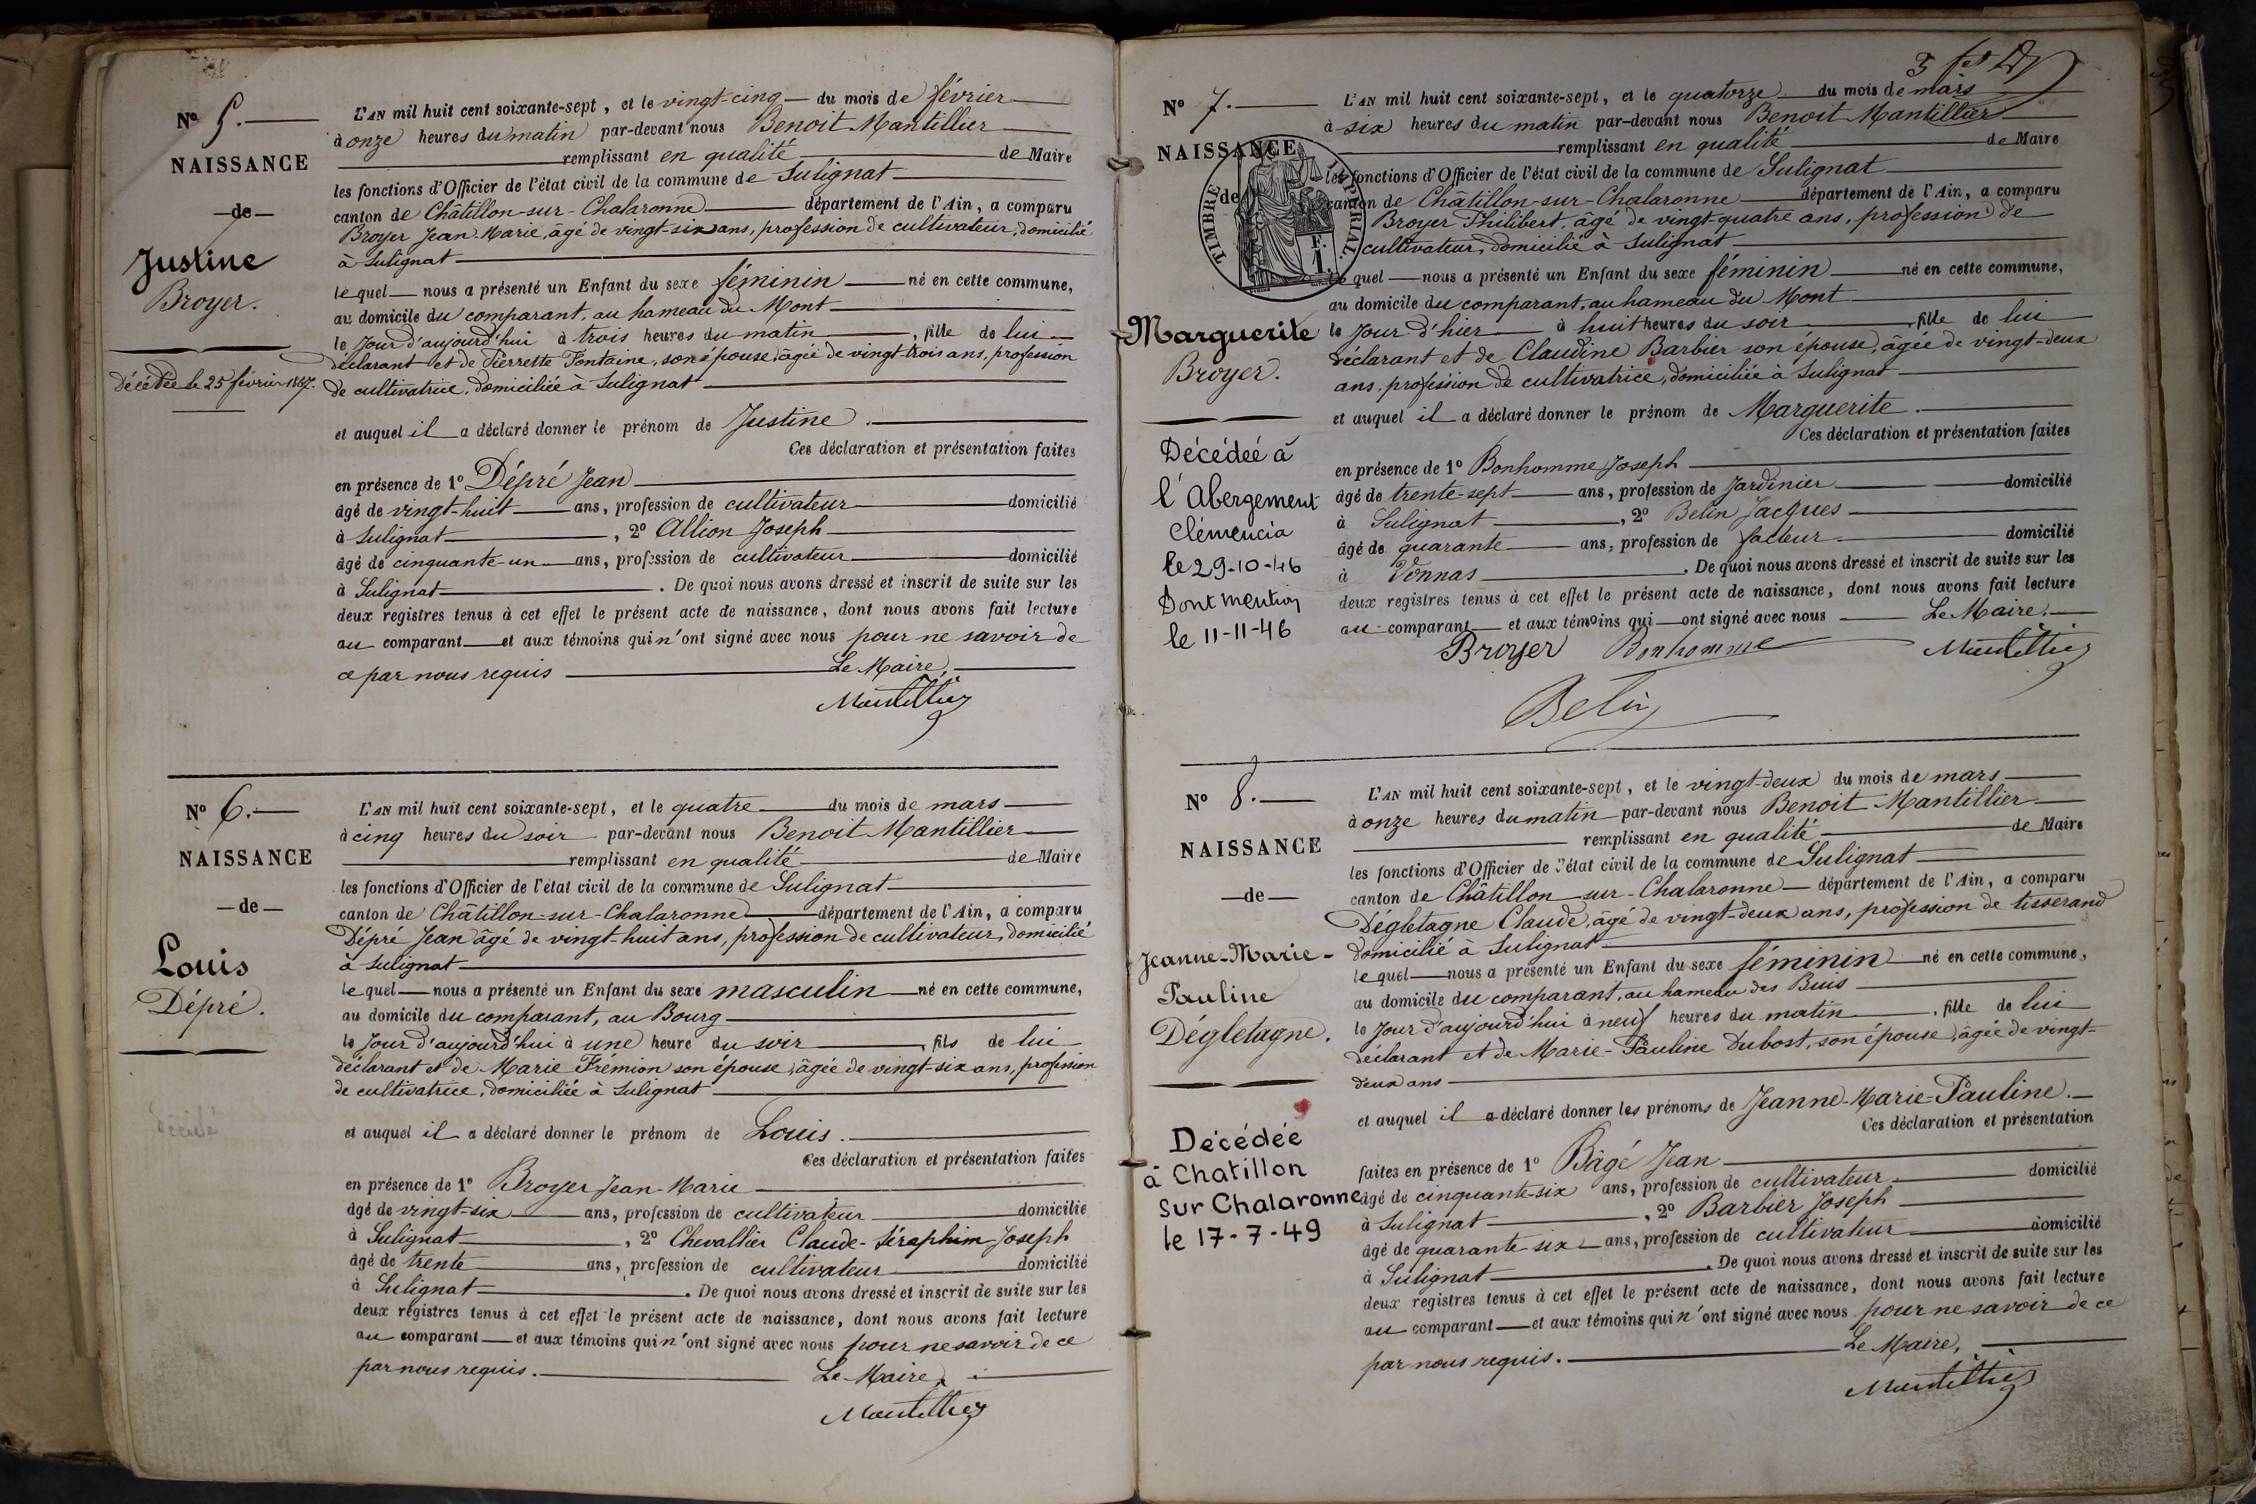 N° 5.
NAISSANCE
de
Justine
Broyer.
Décédée le 25 février 1867.
L'AN mil huit cent soixante-sept, et le vingt-cinq du mois de février
à onze heures du matin par-devant nous Benoit Mantillier
remplissant en qualité de Maire
les fonctions d'Officier de l'état civil de la commune de Sulignat
canton de Châtillon-sur-Chalaronne département de l'Ain, a comparu
Broyer Jean Marie, âgé de vingt-six ans, profession de cultivateur, domicilié
à Sulignat
lequel nous a présenté un Enfant du sexe féminin né en cette commune,
au domicile du comparant, au hameau du Mont
le jour d'aujourd'hui à trois heures du matin, fille de lui
déclarant et de Pierrette Fontaine, son épouse, âgée de vingt trois ans, profession
de cultivatrice, domiciliée à Sulignat
et auquel il a déclaré donner le prénom de Justine.
Ces déclaration et présentation faites
en présence de 1° Dépré Jean
âgé de vingt-huit ans, profession de cultivateur domicilié
à Sulignat, 2° Allion Joseph
âgé de cinquante-un ans, profession de cultivateur domicilié
à Sulignat. De quoi nous avons dressé et inscrit de suite sur les
deux registres tenus à cet effet le présent acte de naissance, dont nous avons fait lecture
au comparant et aux témoins qui n'ont signé avec nous pour ne savoir de
ce par nous requis Le Maire,
Mantillier
N° 6.
NAISSANCE
de
Louis
Dépré.
Décédé
L'AN mil huit cent soixante-sept, et le quatre du mois de mars
à cinq heures du soir par-devant nous Benoit Mantillier
remplissant en qualité de Maire
les fonctions d'Officier de l'état civil de la commune de Sulignat
canton de Châtillon-sur-Chalaronne département de l'Ain, a comparu
Dépré Jean âgé de vingt-huit ans, profession de cultivateur, domicilié
à Sulignat
lequel nous a présenté un Enfant du sexe masculin né en cette commune,
au domicile du comparant, au Bourg
le jour d'aujourd'hui à une heure du soir, fils de lui
déclarant et de Marie Frémion son épouse, âgée de vingt-six ans, profession
de cultivatrice, domiciliée à Sulignat
et auquel il a déclaré donner le prénom de Louis.
Ces déclaration et présentation faites
en présence de 1° Broyer Jean-Marie
âgé de vingt-six ans, profession de cultivateur domicilié
à Sulignat, 2° Chevallier Claude-Séraphim-Joseph
âgé de trente ans, profession de cultivateur domicilié
à Sulignat. De quoi nous avons dressé et inscrit de suite sur les
deux registres tenus à cet effet le présent acte de naissance, dont nous avons fait lecture
au comparant et aux témoins qui n'ont signé avec nous pour ne savoir de ce
par nous requis. Le Maire,
Mantillier
3
N° 7.
NAISSANCE
de
TIMBRE IMPÉRIAL
1 F.
Marguerite
Broyer.
Décédée à
l'Abergement
Clémencia
le 29-10-46
Dont mention
le 11-11-46
L'AN mil huit cent soixante-sept, et le quatorze du mois de mars
à six heures du matin par-devant nous Benoit Mantillier
remplissant en qualité de Maire
les fonctions d'Officier de l'état civil de la commune de Sulignat
canton de Châtillon-sur-Chalaronne département de l'Ain, a comparu
Broyer Philibert, âgé de vingt-quatre ans, profession de
cultivateur, domicilié à Sulignat
lequel nous a présenté un Enfant du sexe féminin né en cette commune,
au domicile du comparant, au hameau du Mont
le jour d'hier à huit heures du soir, fille de lui
déclarant et de Claudine Barbier son épouse, âgée de vingt-deux
ans, profession de cultivatrice, domiciliée à Sulignat
et auquel il a déclaré donner le prénom de Marguerite.
Ces déclaration et présentation faites
en présence de 1° Bonhomme Joseph
âgé de trente-sept ans, profession de Jardinier domicilié
à Sulignat, 2° Belin Jacques
âgé de quarante ans, profession de facteur domicilié
à Vonnas. De quoi nous avons dressé et inscrit de suite sur les
deux registres tenus à cet effet le présent acte de naissance, dont nous avons fait lecture
au comparant et aux témoins qui ont signé avec nous Le Maire.
Broyer Bonhomme Mantillier
Belin
N° 8.
NAISSANCE
de
Jeanne-Marie-
Pauline
Dégletagne.
Décédée
à Chatillon
sur Chalaronne
le 17-7-49
L'AN mil huit cent soixante-sept, et le vingt-deux du mois de mars
à onze heures du matin par-devant nous Benoit Mantillier
remplissant en qualité de Maire
les fonctions d'Officier de l'état civil de la commune de Sulignat
canton de Châtillon-sur-Chalaronne département de l'Ain, a comparu
Dégletagne Claude, âgé de vingt-deux ans, profession de tisserand
domicilié à Sulignat
lequel nous a présenté un Enfant du sexe féminin né en cette commune,
au domicile du comparant, au hameau des Buis
le jour d'aujourd'hui à neuf heures du matin, fille de lui
déclarant et de Marie-Pauline Dubost, son épouse, âgée de vingt-
deux ans
et auquel il a déclaré donner les prénoms de Jeanne-Marie-Pauline.
Ces déclaration et présentation
faites en présence de 1° Bâgé Jean
âgé de cinquante-six ans, profession de cultivateur domicilié
à Sulignat, 2° Barbier Joseph
âgé de quarante-six ans, profession de cultivateur domicilié
à Sulignat. De quoi nous avons dressé et inscrit de suite sur les
deux registres tenus à cet effet le présent acte de naissance, dont nous avons fait lecture
au comparant et aux témoins qui n'ont signé avec nous pour ne savoir de ce
par nous requis. Le Maire,
Mantillier